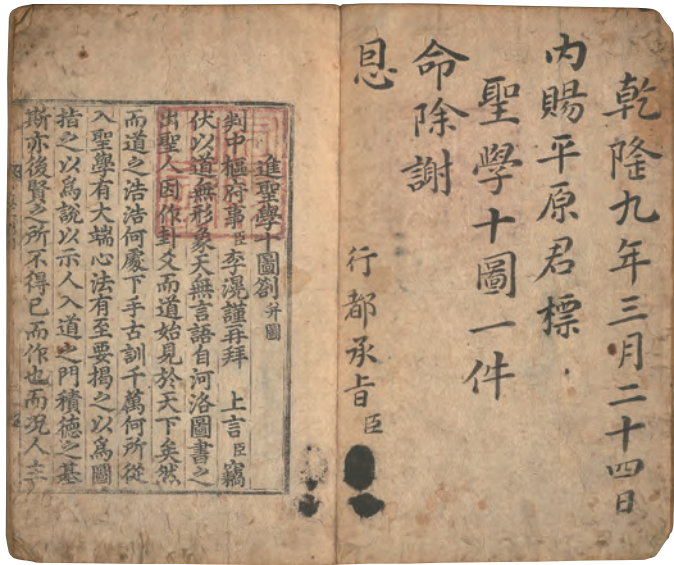 乾隆九年三月二十四日
內賜平原君標
聖學十圖一件
命除謝
恩
行都承旨臣
進聖學十圖劄 并圖
判中樞府事臣李滉謹再拜 上言臣竊
伏以道無形象天無言語自河洛圖書之
出聖人因作卦爻而道始見於天下矣然
而道之浩浩何處下手古訓千萬何所從
入聖學有大端心法有至要揭之以爲圖
指之以爲說以示人入道之門積德之基
斯亦後賢之所不得已而作也而况人主